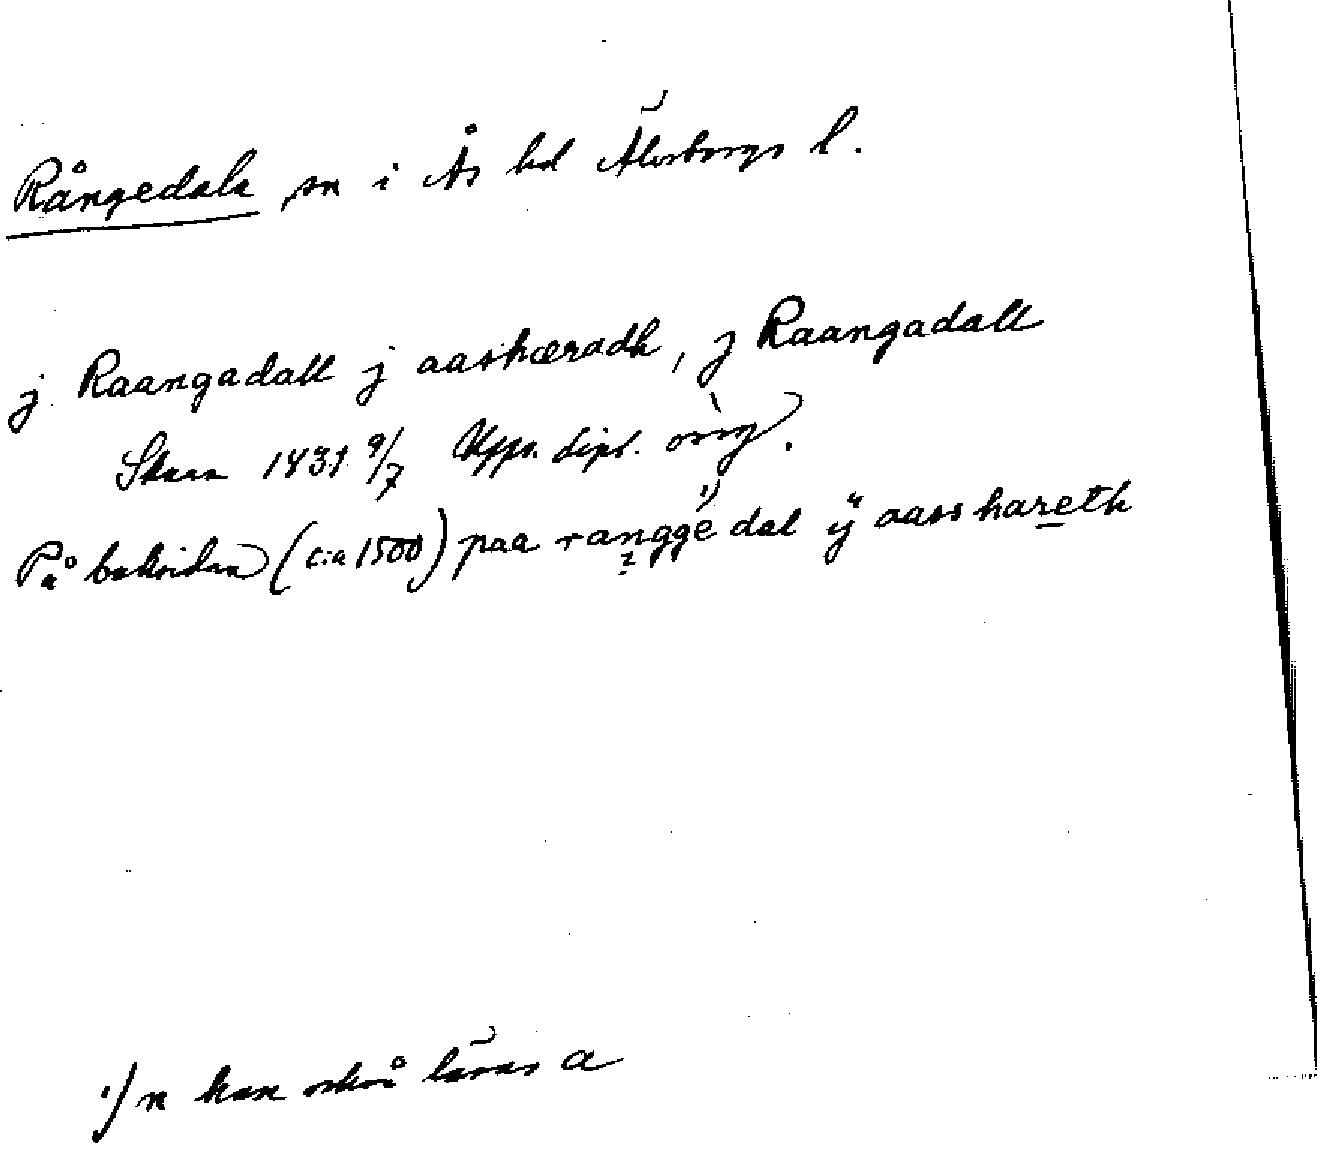 Rångedala sn i Ås hd Älvsborgs l.
j Raangadall j aashæradh, j Raangadall
Skara 1431 9/7 Upps. dipl. orig.
På baksidan (c:a 1500) paa ranggé 1) dal ÿ aass hareth
1) n kan också läsas a